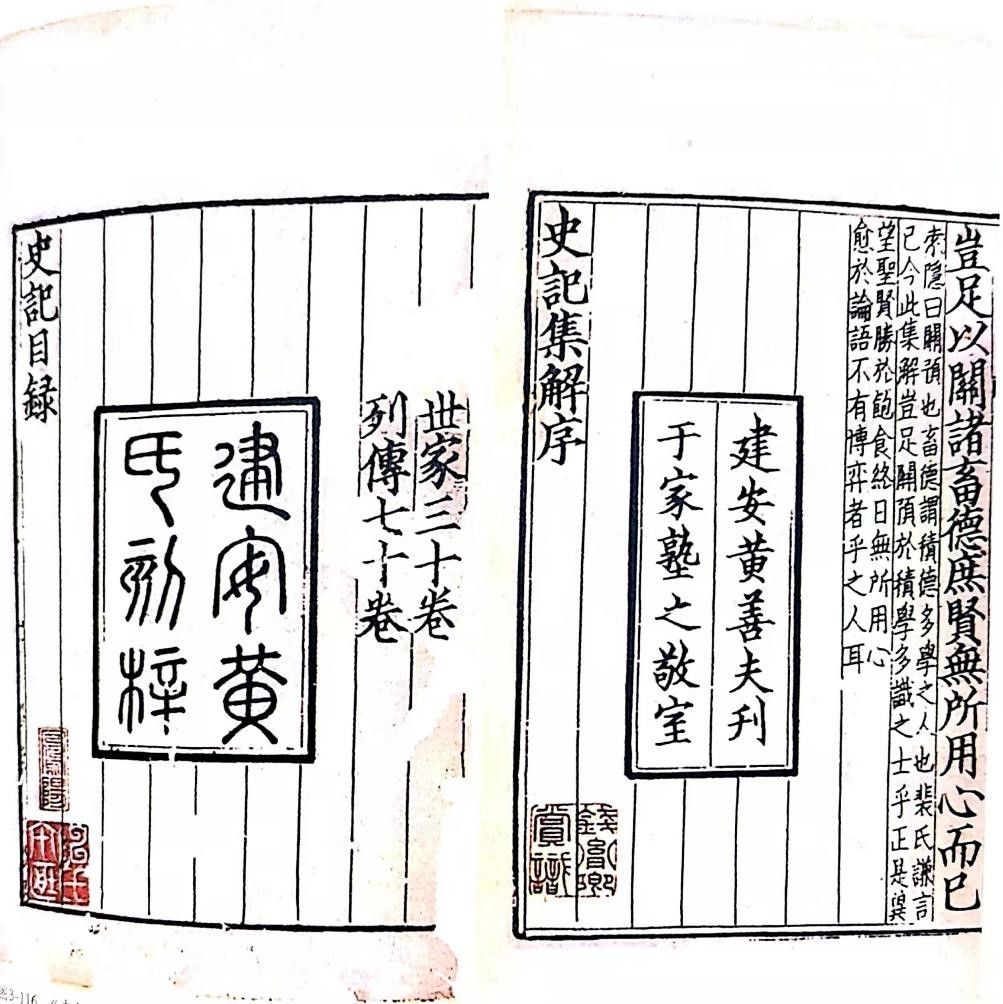 豈足以關諸畜德庶賢無所用心而已
索隱曰關預也畜德謂積德多學之人也裴氏謙言
已今此集解豈足關預於積學多識之士乎正是冀
望聖賢勝於飽食終日無所用心
愈於論語不有博弈者乎之人耳
建安黄善夫刋
于家塾之敬室
史記集解序
賞識
世家三十卷
列傳七十卷
建安黄
氏刻梓
史記目録
图3-116